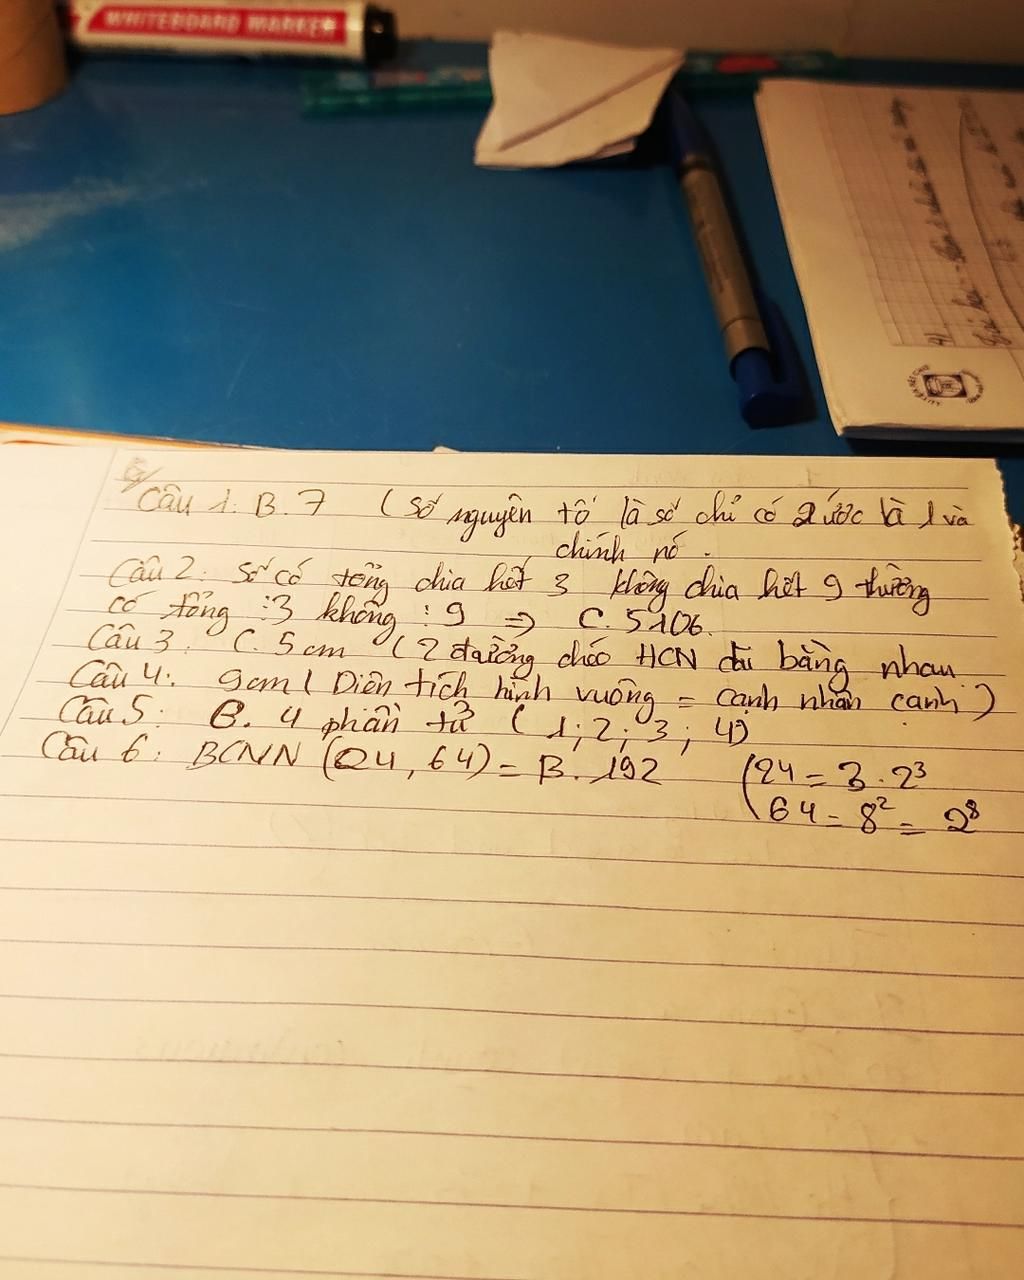 WHITEBOARD MARKER
Câu 1. B. 7 (Số nguyên tố là số chỉ có 2 ước là 1 và
chính nó.
Câu 2: Số có tổng chia hết 3 không chia hết 9 thường
có tổng ⋮3 không ⋮9 => C. 5106.
Câu 3: C. 5 cm (2 đường chéo HCN dài bằng nhau
Câu 4: 9cm (Diện tích hình vuông = cạnh nhân cạnh)
Câu 5: B. 4 phần tử (1; 2; 3; 4)
Câu 6: BCNN (24, 64) = B. 192
(24 = 3 . 2³
64 = 8² = 2⁸